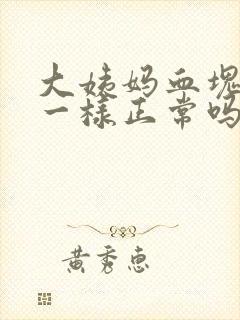 大姨妈血块
一样正常吗
黄秀惠